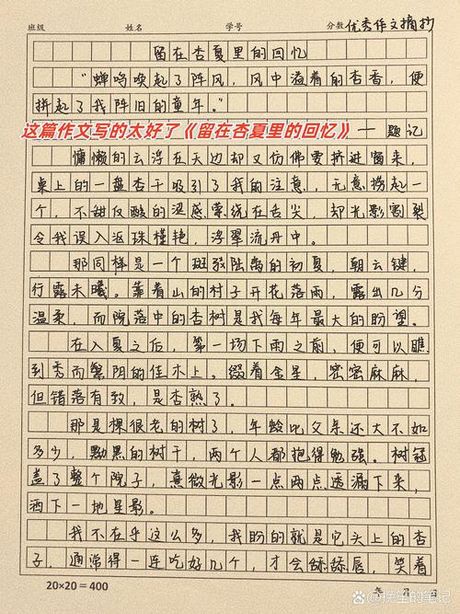 班级 姓名 学号 分数 优秀作文摘抄
留在杏夏里的回忆
“蝉鸣唤起了阵风，风中溢着的杏香，便
拼起了我陈旧的童年。”
这篇作文写的太好了《留在杏夏里的回忆》
——题记
慵懒的云浮在天边却又仿佛要挤进窗来，
桌上的一盘杏干吸引了我的注意，无意捞起一
个，不甜反酸的涩感萦绕在舌尖，却光影割裂
令我误入返珠槿艳，浮翠流丹中。
那同样是一个斑驳陆离的初夏，朝云键，
行露未曦。靠着山的村子开花落雨，露出几分
温柔，而院落中的杏树是我每年最大的盼望。
在入夏之后，第一场下雨之前，便可以瞧
到秀而繁阴的佳木上。缀着金星，密密麻麻，
但错落有致，是杏熟了。
那是棵很老的树了，年龄比父亲还大不知
多少，黝黑的树干，两个人都抱得勉强。树冠
盖了整个院子，熹微光影一点两点透漏下来，
洒下一地星影。
我不在乎这么多，我盼的就是它头上的杏
子，通常得一连吃好几个，才会舔舔唇，笑着
20×20=400